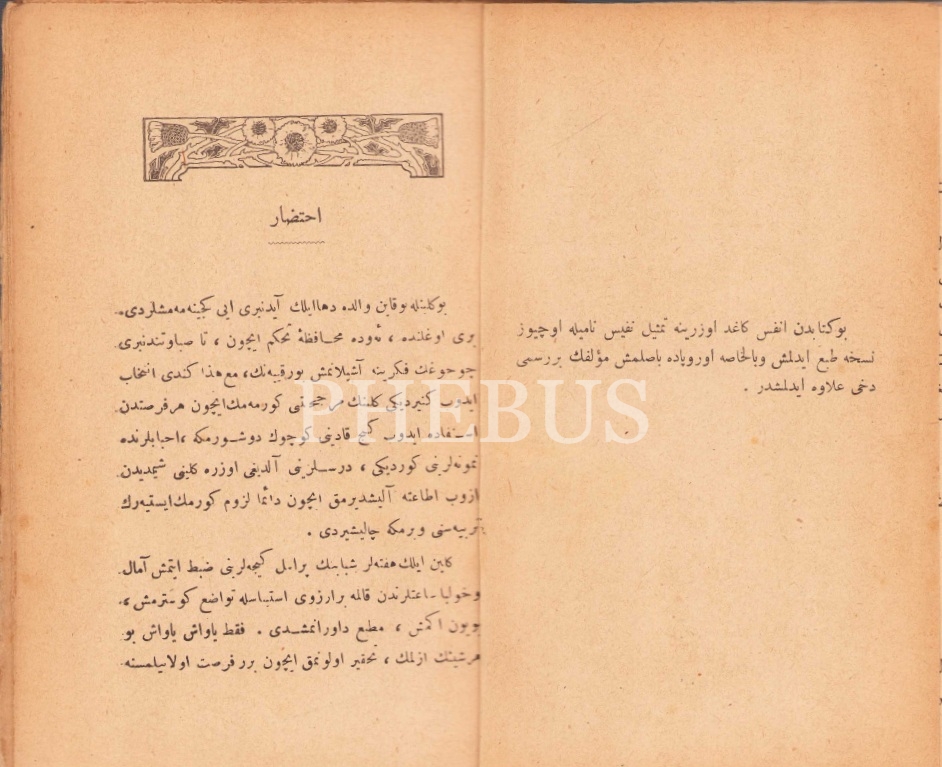 بو كتابدن انفس كاغد اوزرینه تمثیل نفیس نامیله اوچیوز
نسخه طبع ایدلمش وبالخاصه اوروپاده باصلمش مؤلفك بر رسمی
دخی علاوه ایدلمشدر .
احتضار
بوكلینله بوقاین والده دها ایلك آیدنبری ایی كچینه‌مه‌مشلردی.
بری اوغلنده ، ئوده محافظهٔ تحكم ایچون ، تا صباوتندنبری
چوجوغك فكرینه آشیلانمش بورقیبه‌نك، مع هذا كندی انتخاب
ایدوب كتیردیكی كلینك مرجحیتنی كورمه‌مك ایچون هر فرصتدن
استفاده ایدوب كنج قادینی كوچوك دوشورمكه ، احبابلرنده
نمونه‌لرینی كوردیكی ، درسلرینی آلدیغی اوزره كلینی شیمدیدن
ازوب اطاعته آلیشدیرمق ایچون دائما لزوم كورمك ایستیه‌رك
تربیه‌سنی ویرمكه چالیشیردی .
كلین ایلك هفته‌لر شبابنك كیجه‌لرینی ضبط ایتمش آمال
وخولیا ساعتلرندن قالمه بر آرزوی استیناسله تواضع كوسترمش ،
بویون اكمش ، مطیع داورانمشدی . فقط یاواش یاواش بو
هرشیئك ازلمك ، تحقیر اولونمق ایچون برر فرصت اولابیلمسنه
PHEBUS